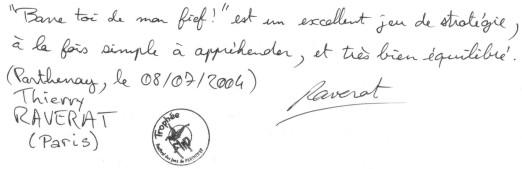 "Barre toi de mon fief!" est un excellent jeu de stratégie,
à la fois simple à appréhender, et très bien équilibré.
(Parthenay, le 08/07/2004)
Thierry
RAVERAT
(Paris)
Raverat
Trophée
FLIP